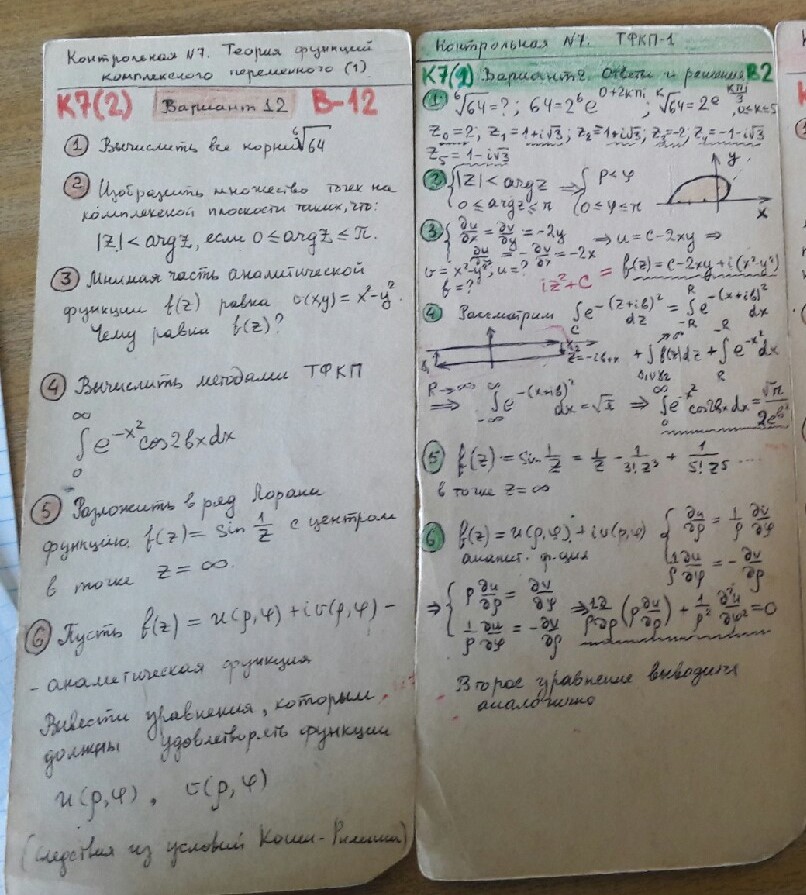 Контрольная №7. Теория функций
комплексного переменного (1)
К7(2) Вариант 12 В-12
① Вычислить все корни ⁶√64
② Изобразить множество точек на
комплексной плоскости таких, что:
|z| < argz, если 0 ≤ argz ≤ π.
③ Мнимая часть аналитической
функции f(z) равна v(x,y) = x²-y².
Чему равна f(z)?
④ Вычислить методами ТФКП
∞
∫ e^{-x²} cos2bxdx
0
⑤ Разложить в ряд Лорана
функцию f(z) = sin 1/z с центром
в точке z = ∞
⑥ Пусть f(z) = u(ρ,φ) + iv(ρ,φ) -
- аналитическая функция
Вывести уравнения, которым
должны удовлетворять функции
u(ρ,φ), v(ρ,φ)
(следствия из условий Коши-Римана)
Контрольная №7. ТФКП-1
К7(2) Вариант 2. Ответы и решения В2
① ⁶√64 = ?; 64 = 2⁶e^{0+2kπi}; ⁶√64 = 2e^{kπi/3}, 0≤k≤5
z₀=2; z₁=1+i√3; z₂=1+i√3; z₃=-2; z₄=-1-i√3
z₅=1-i√3
② { |z| < argz ⇒ { ρ<φ y
0 ≤ argz ≤ π 0 ≤ φ ≤ π x
③ { ∂u/∂x = ∂v/∂y = -2y
∂u/∂y = -∂v/∂x = -2x ⇒ u = c-2xy ⇒
v = x²-y², u=? iz²+C = f(z) = c-2xy+i(x²-y²)
f=?
④ Рассмотрим ∫_C e^{-(z+ib)²} dz = ∫_{-R}^{R} e^{-(x+ib)²} dx
z=-ib+x + ∫ f(z)dz + ∫_{R}^{-R} e^{-x²} dx
R→∞ ⇒ ∫_{-∞}^{∞} e^{-(x+ib)²} dx = √π ⇒ ∫_{0}^{∞} e^{-x²} cos2bx dx = √π/2e^{b²}
⑤ f(z) = sin 1/z = 1/z - 1/3!z³ + 1/5!z⁵ ....
в точке z=∞
⑥ f(z) = u(ρ,φ) + iv(ρ,φ) { ∂u/∂ρ = 1/ρ ∂v/∂φ
аналит. ф-ция 1/ρ ∂u/∂φ = -∂v/∂ρ
⇒ { ρ ∂u/∂ρ = ∂v/∂φ ⇒ 1/ρ ∂/∂ρ (ρ ∂u/∂ρ) + 1/ρ² ∂²u/∂φ² = 0
1/ρ ∂u/∂φ = -∂v/∂ρ
Второе уравнение выводится
аналогично